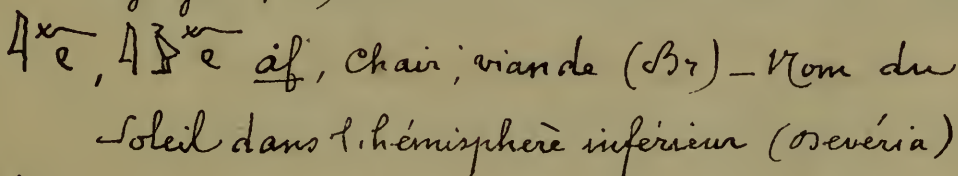 áf, Chair, viande (Br) _ Nom du
Soleil dans l'hémisphère inférieur (Devéria)